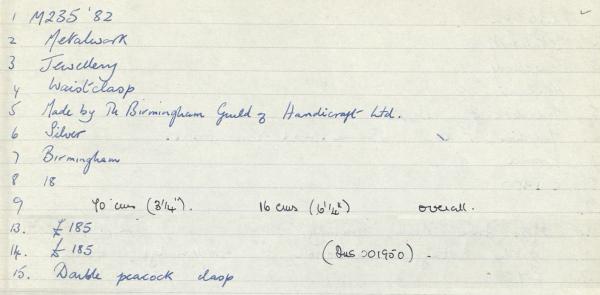 1 M235 '82
2 Metalwork
3 Jewellery
4 Waistclasp
5 Made by The Birmingham Guild of Handicraft Ltd.
6 Silver
7 Birmingham
8 18
9 10 cms (3¼"). 16 cms (6¼") overall.
13. £185
14. £185 (Ins 001950).
15. Double peacock clasp